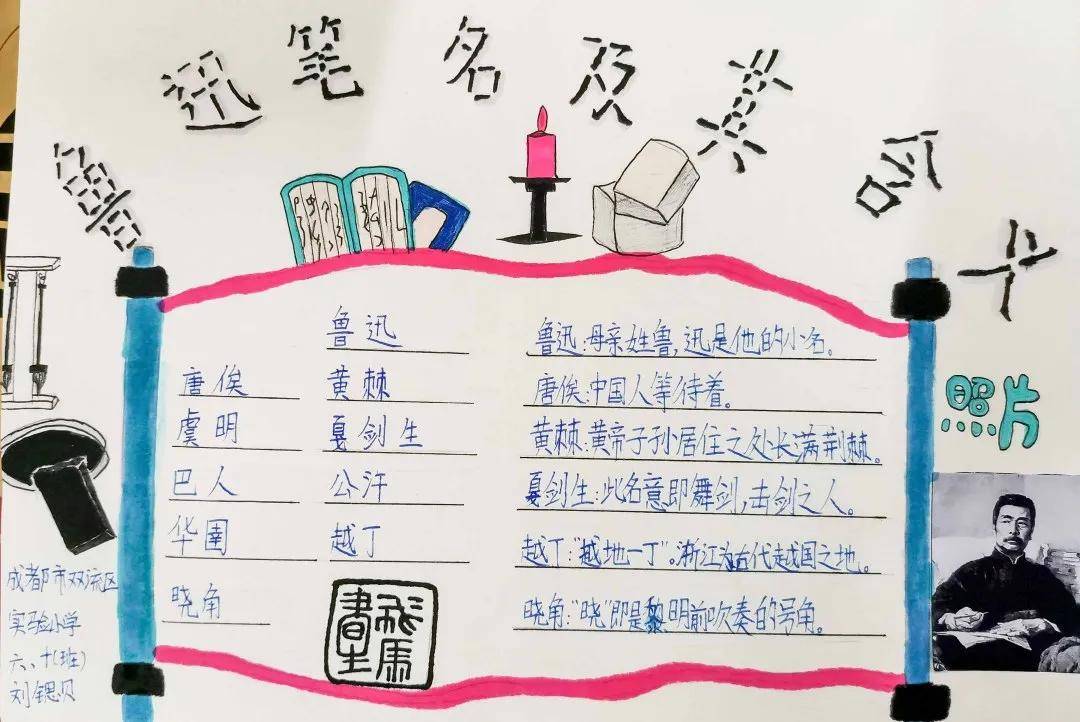 鲁迅笔名及其含义
鲁迅
唐俟 黄棘
虞明 戛剑生
巴人 公汗
华圉 越丁
晓角
鲁迅:母亲姓鲁,迅是他的小名。
唐俟:中国人等待着。
黄棘:黄帝子孙居住之处长满荆棘。
戛剑生:此名意即舞剑,击剑之人。
越丁:“越地一丁”。浙江为古代越国之地。
晓角:“晓”即是黎明前吹奏的号角。
照片
成都市双流区
实验小学
六、十(班)
刘锶贝